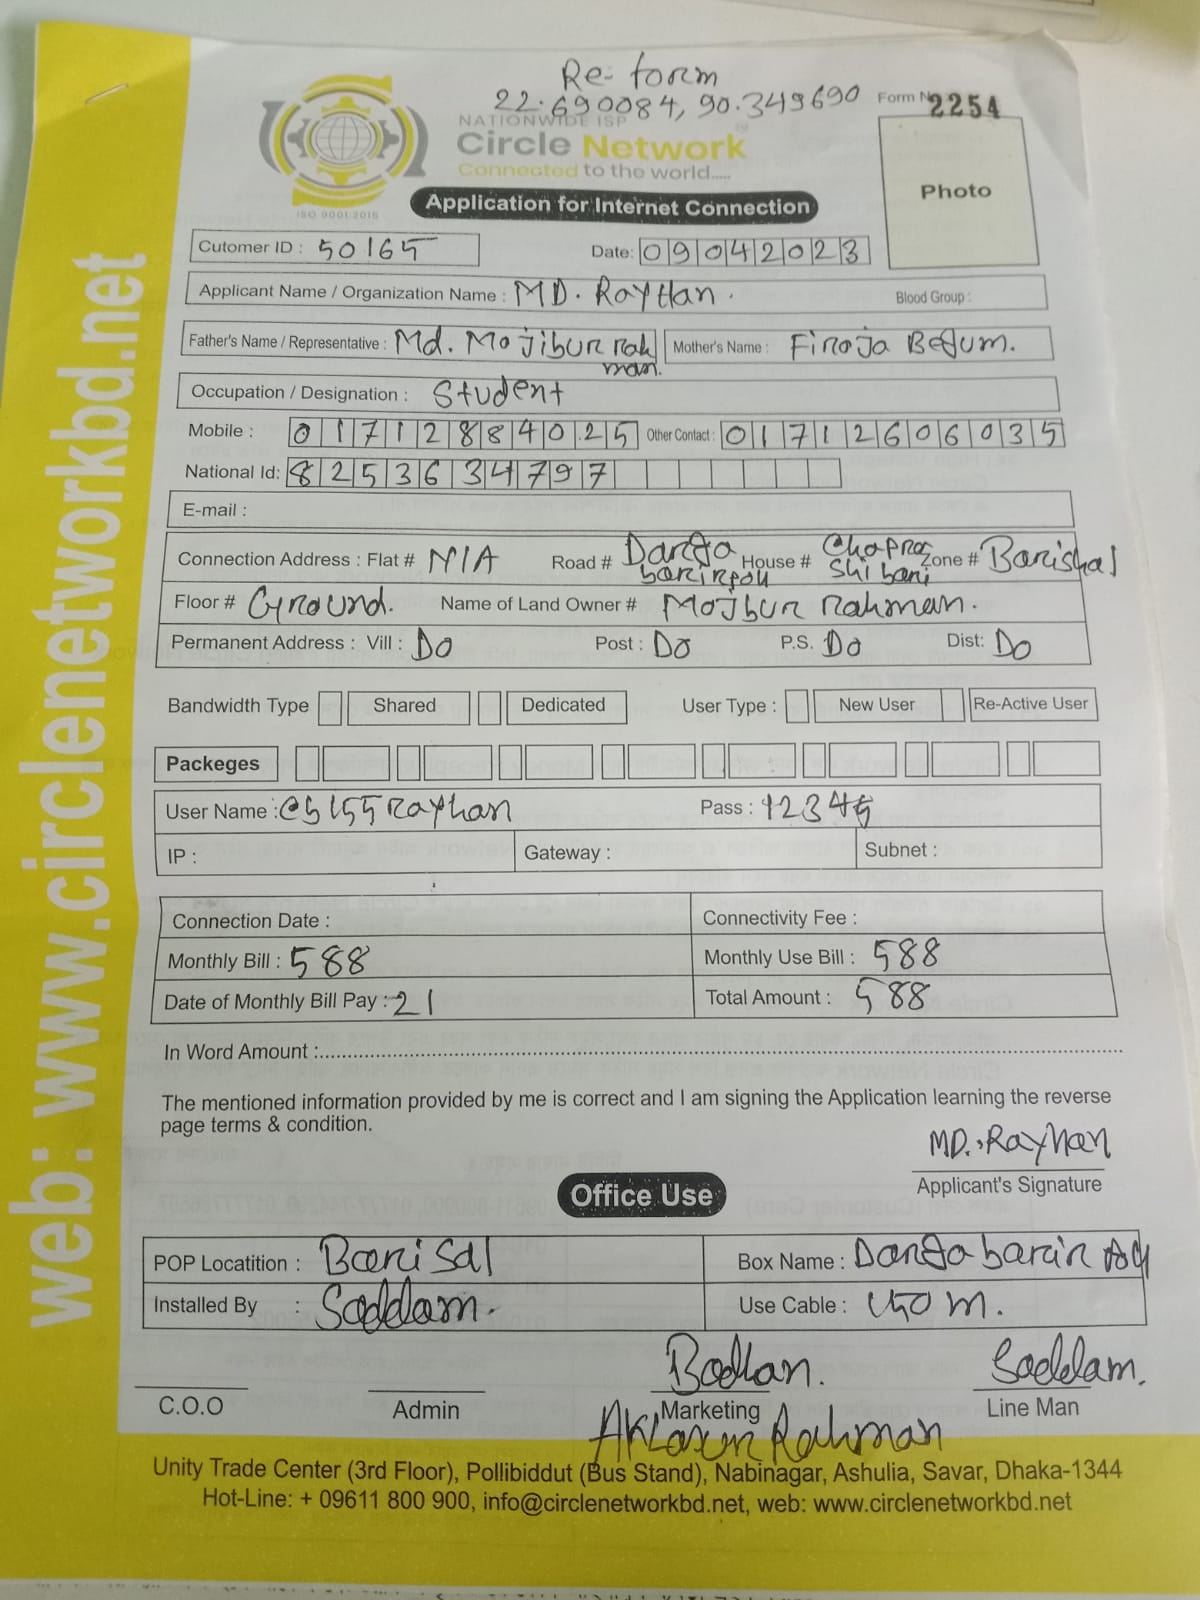 Re-form
22.690084, 90.349690
Form No 2254
NATIONWIDE ISP
Circle Network
Connected to the world.....
ISO 9001:2015
Photo
Application for Internet Connection
Cutomer ID : 50165 Date: 09042023
Applicant Name / Organization Name : MD. RayHan. Blood Group :
Father's Name / Representative : Md. Mojibur rahman. Mother's Name : Firoja Begum.
Occupation / Designation : Student
Mobile : 01712884025 Other Contact : 01712606035
National Id: 8253634797
E-mail :
Connection Address : Flat # N/A Road # Danga House # Zone # Barishal
Floor # Ground. Name of Land Owner # Mojbur Rahman.
Permanent Address : Vill : Do Post : Do P.S. Do Dist: Do
Bandwidth Type Shared Dedicated User Type : New User Re-Active User
Packeges
User Name : Pass : 12345
IP : Gateway : Subnet :
Connection Date : Connectivity Fee :
Monthly Bill : 588 Monthly Use Bill : 588
Date of Monthly Bill Pay : 21 Total Amount : 588
In Word Amount :
The mentioned information provided by me is correct and I am signing the Application learning the reverse
page terms & condition.
MD. Rayhan
Applicant's Signature
Office Use
POP Locatition : Barisal Box Name :
Installed By : Saddam. Use Cable :
Saddam.
C.O.O Admin Marketing Line Man
Rahman
Unity Trade Center (3rd Floor), Pollibiddut (Bus Stand), Nabinagar, Ashulia, Savar, Dhaka-1344
Hot-Line: + 09611 800 900, info@circlenetworkbd.net, web: www.circlenetworkbd.net
web: www.circlenetworkbd.net